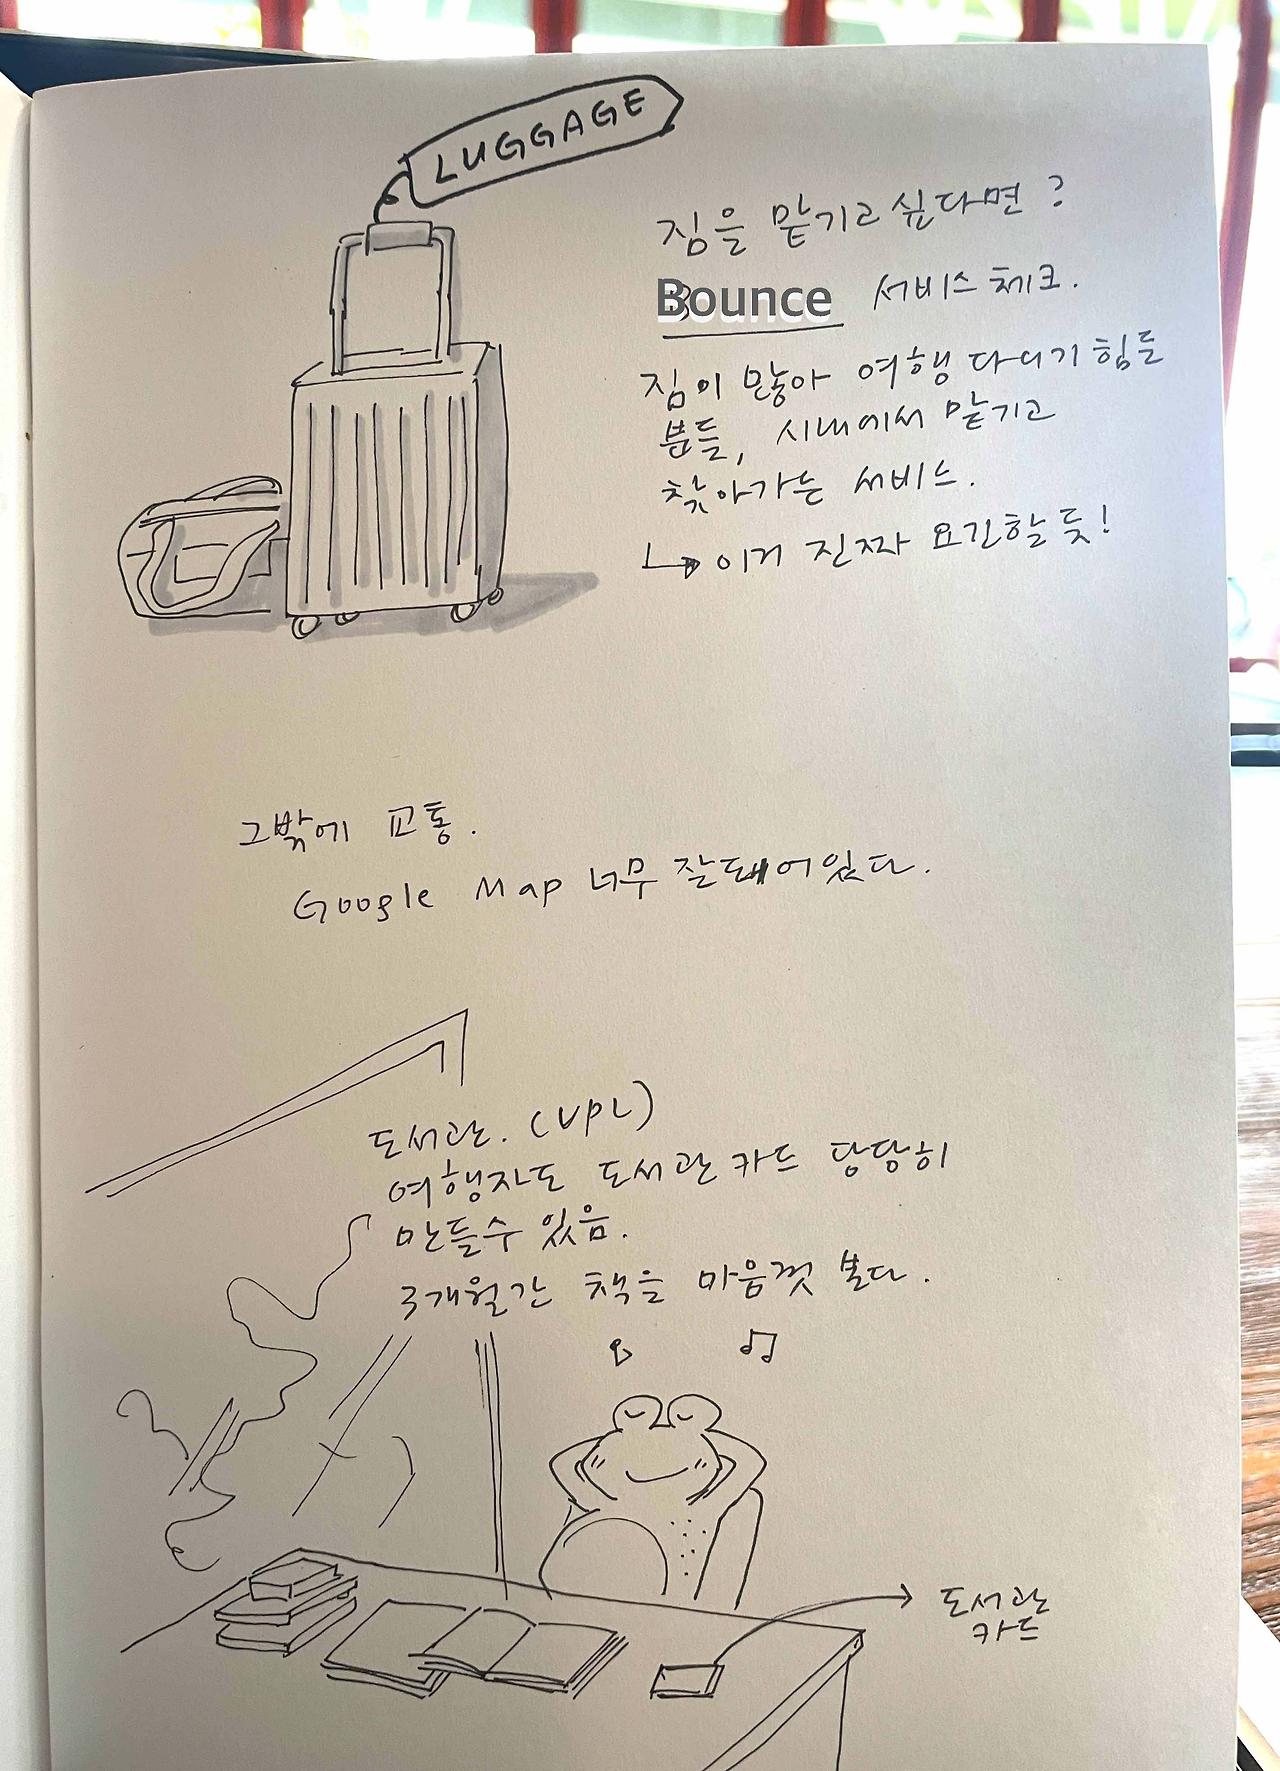 LUGGAGE
짐을 맡기고 싶다면?
Bounce 서비스 체크.
짐이 많아 여행 다니기 힘든
분들, 시내에서 맡기고
찾아가는 서비스.
이거 진짜 요긴할 듯!
그밖에 교통.
Google Map 너무 잘돼어있다.
도서관. (VPL)
여행자도 도서관 카드 당당히
만들수 있음.
3개월간 책을 마음껏 본다.
도서관
카드